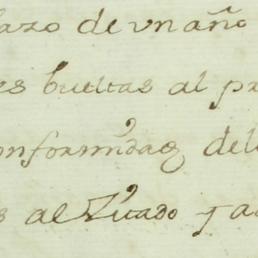 lazo de un año
es bueltas al pr
onformidad del
s al Zitado y a